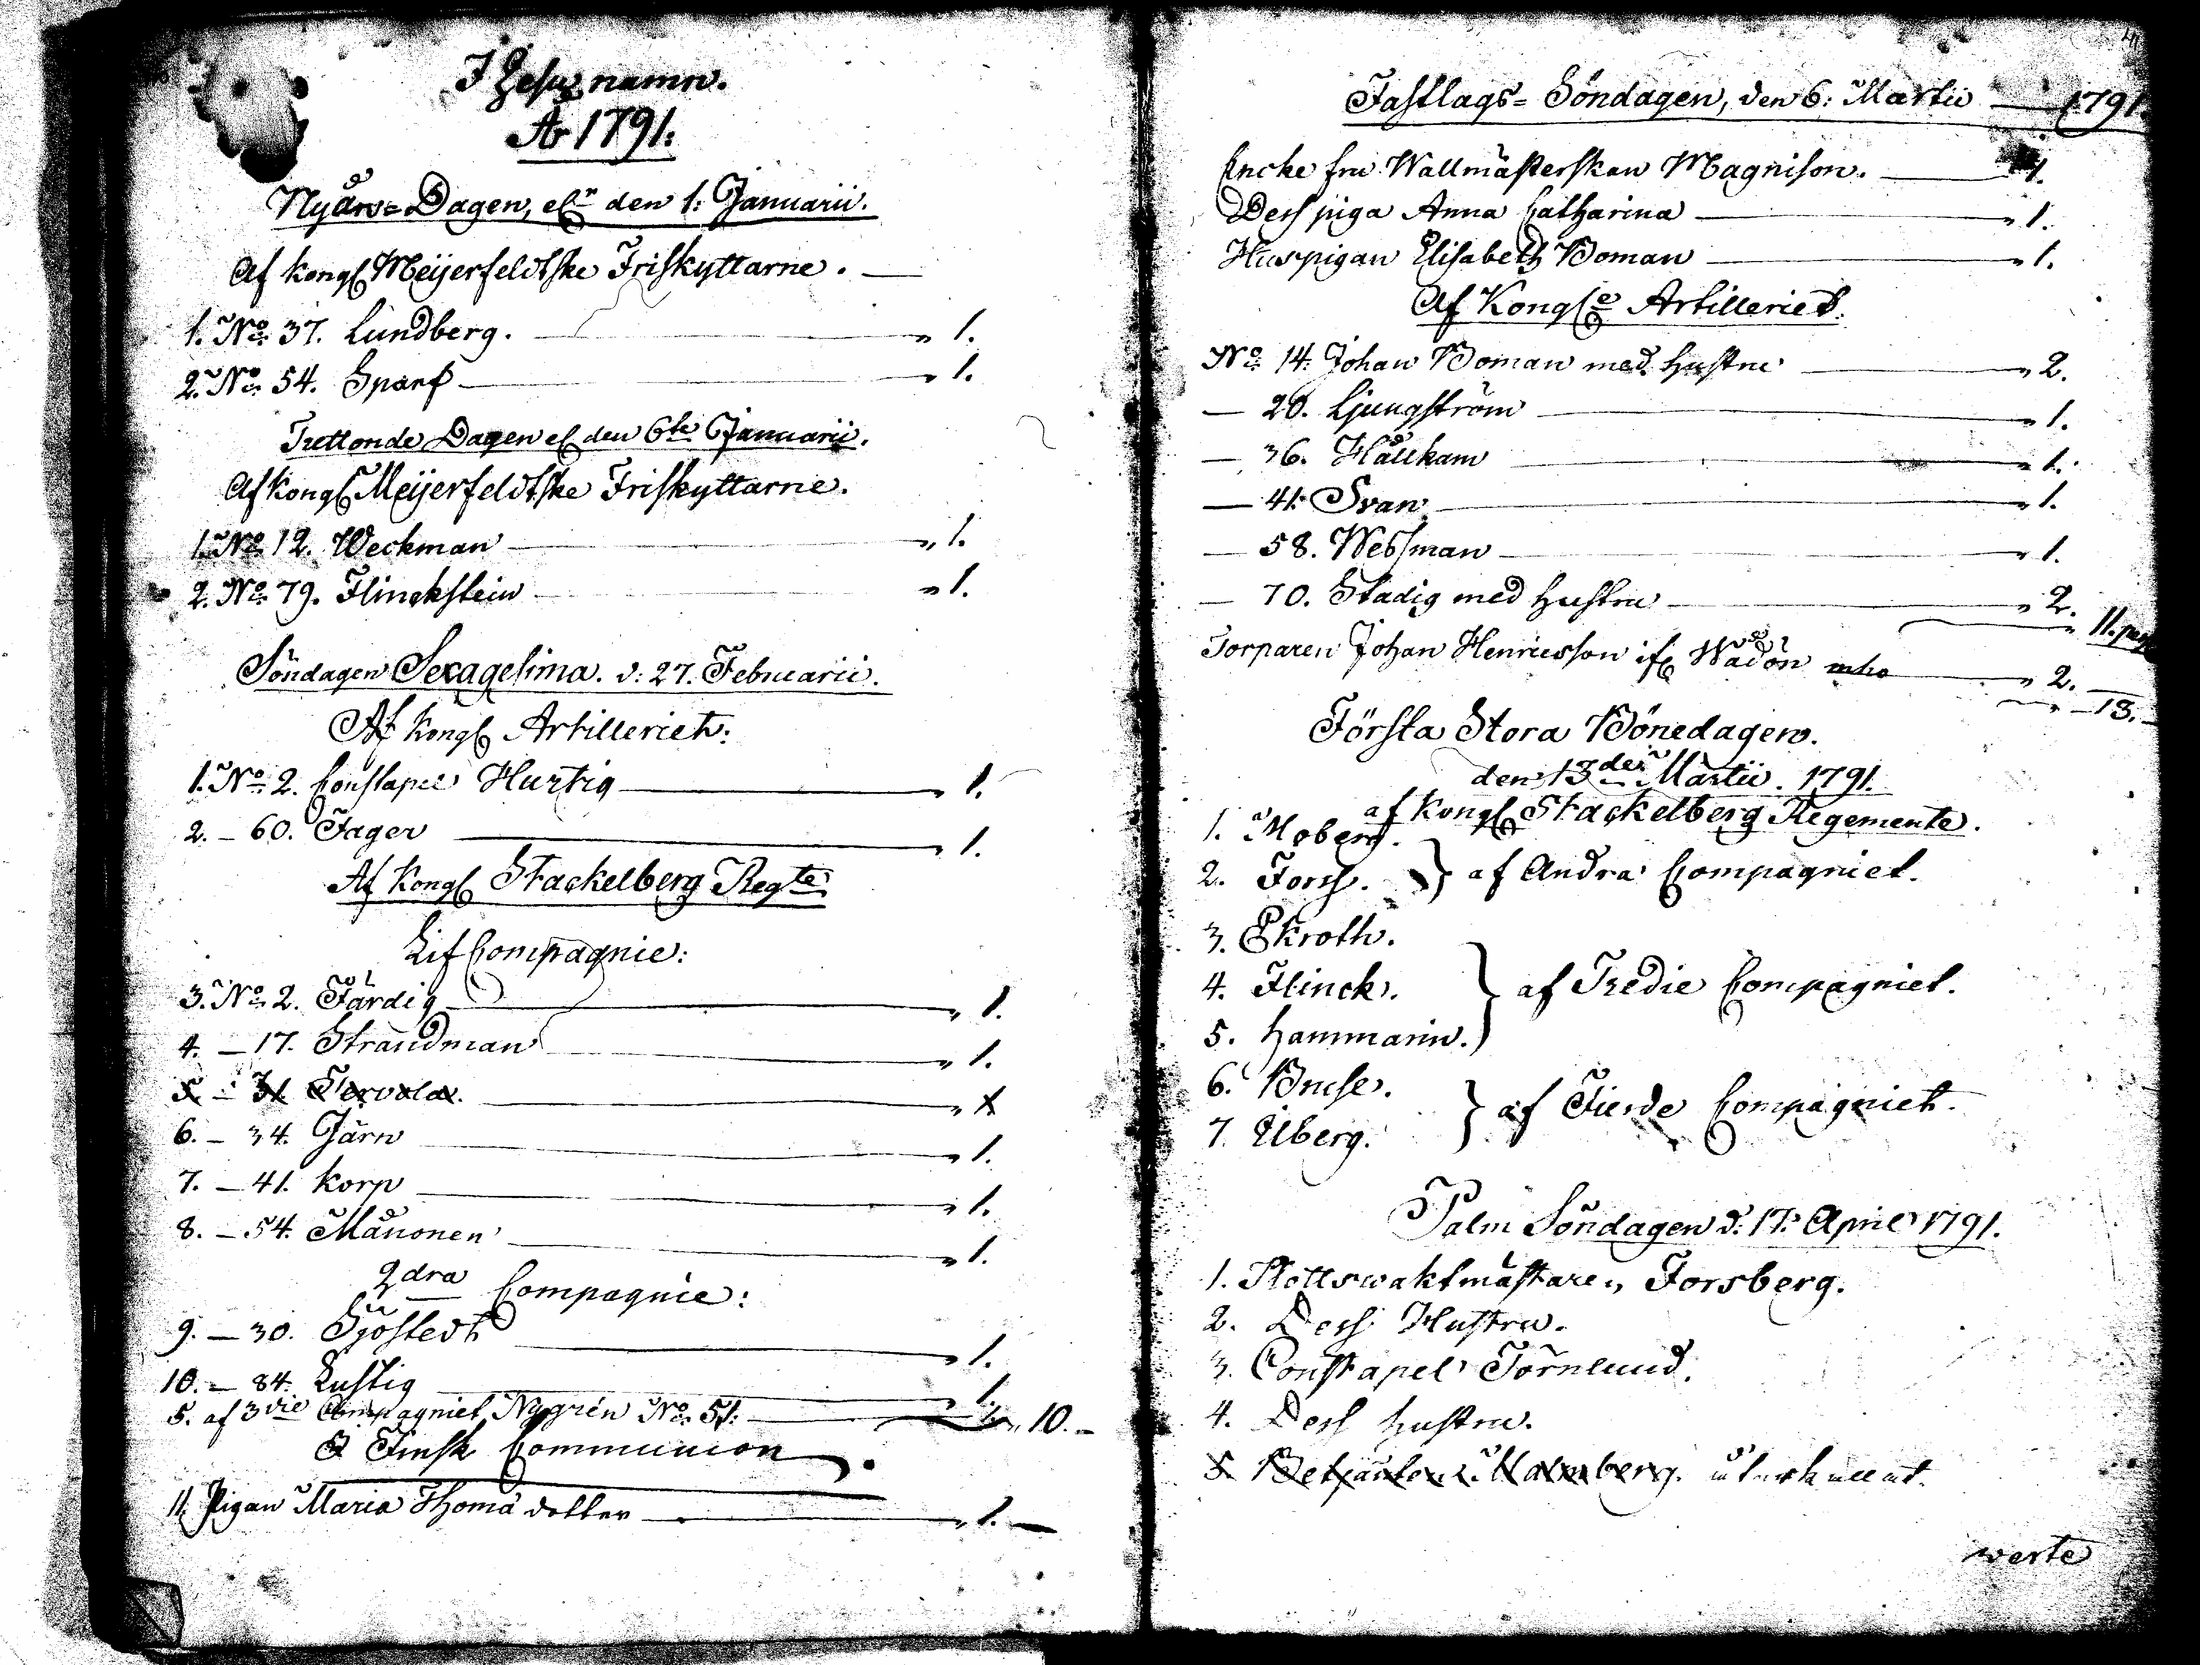 I Jesu namn.
År 1791.
Nyårs=Dagen, elr den 1: Januarii.
Af Kongl Meijerfeldtske Friskyttarne.
1. No 37. Lundberg. " 1.
2. No 54. Sparf " 1.
Trettonde Dagen el den 6te Januarii.
Af Kongl Meijerfeldtske Friskyttarne.
1. No 12. Weckman " 1.
2. No 79. Flinckstein " 1.
Söndagen Sexagesima. d: 27. Februarii.
Af Kongl Artilleriet:
1. No 2. Constapel Hurtig " 1.
2. – 60. Jager " 1.
Af Kongl Stackelberg Regte
Lif Compagnie:
3. No 2. Färdig " 1.
4. – 17. Strandman " 1.
5. – 31. Tervola. " 1
6. – 34. Järn " 1.
7. – 41. Korp " 1.
8. – 54. Månonen " 1.
2dra Compagnie:
9. – 30. Sjöstedt " 1.
10. – 84. Lustig " 1.
5. af 3die Compagniet Nygrén No 51. 1. " 10. –
Finsk Communion
11. Pigan Maria Thomä dotter " 1. –
Fastlags= Söndagen, den 6: Martii 1791.
Encke fru Wallmästerskan Magnison. 1.
Dess piga Anna Catharina " 1.
Huspigan Elisabeth Boman " 1.
Af Kongle Artilleriet.
No 14. Johan Boman med hustru " 2.
– 20. Ljungström " 1.
– 36. Hållkam " 1.
– 41. Svan " 1.
– 58. Wessman " 1.
– 70. Stadig med hustru " 2.
" 11.
Torparen Johan Henricsson Wådön " 2.
" 13.
Första Stora Bönedagen.
den 13de Martii. 1791.
af Kongl Stackelberg Regemente.
1. Moberg.
2. Forss. } af Andra Compagniet.
3. Ekroth.
4. Flinck. } af Tredie Compagniet.
5. Hammarin.
6. Buse. } af Fierde Compagniet.
7. Elberg.
Palm Söndagen d: 17: April 1791.
1. Slottswaktmästaren, Forsberg.
2. Dess Hustru.
3. Constapel Törnlund.
4. Dess hustru.
5 Betjänten Malmberg.
werte